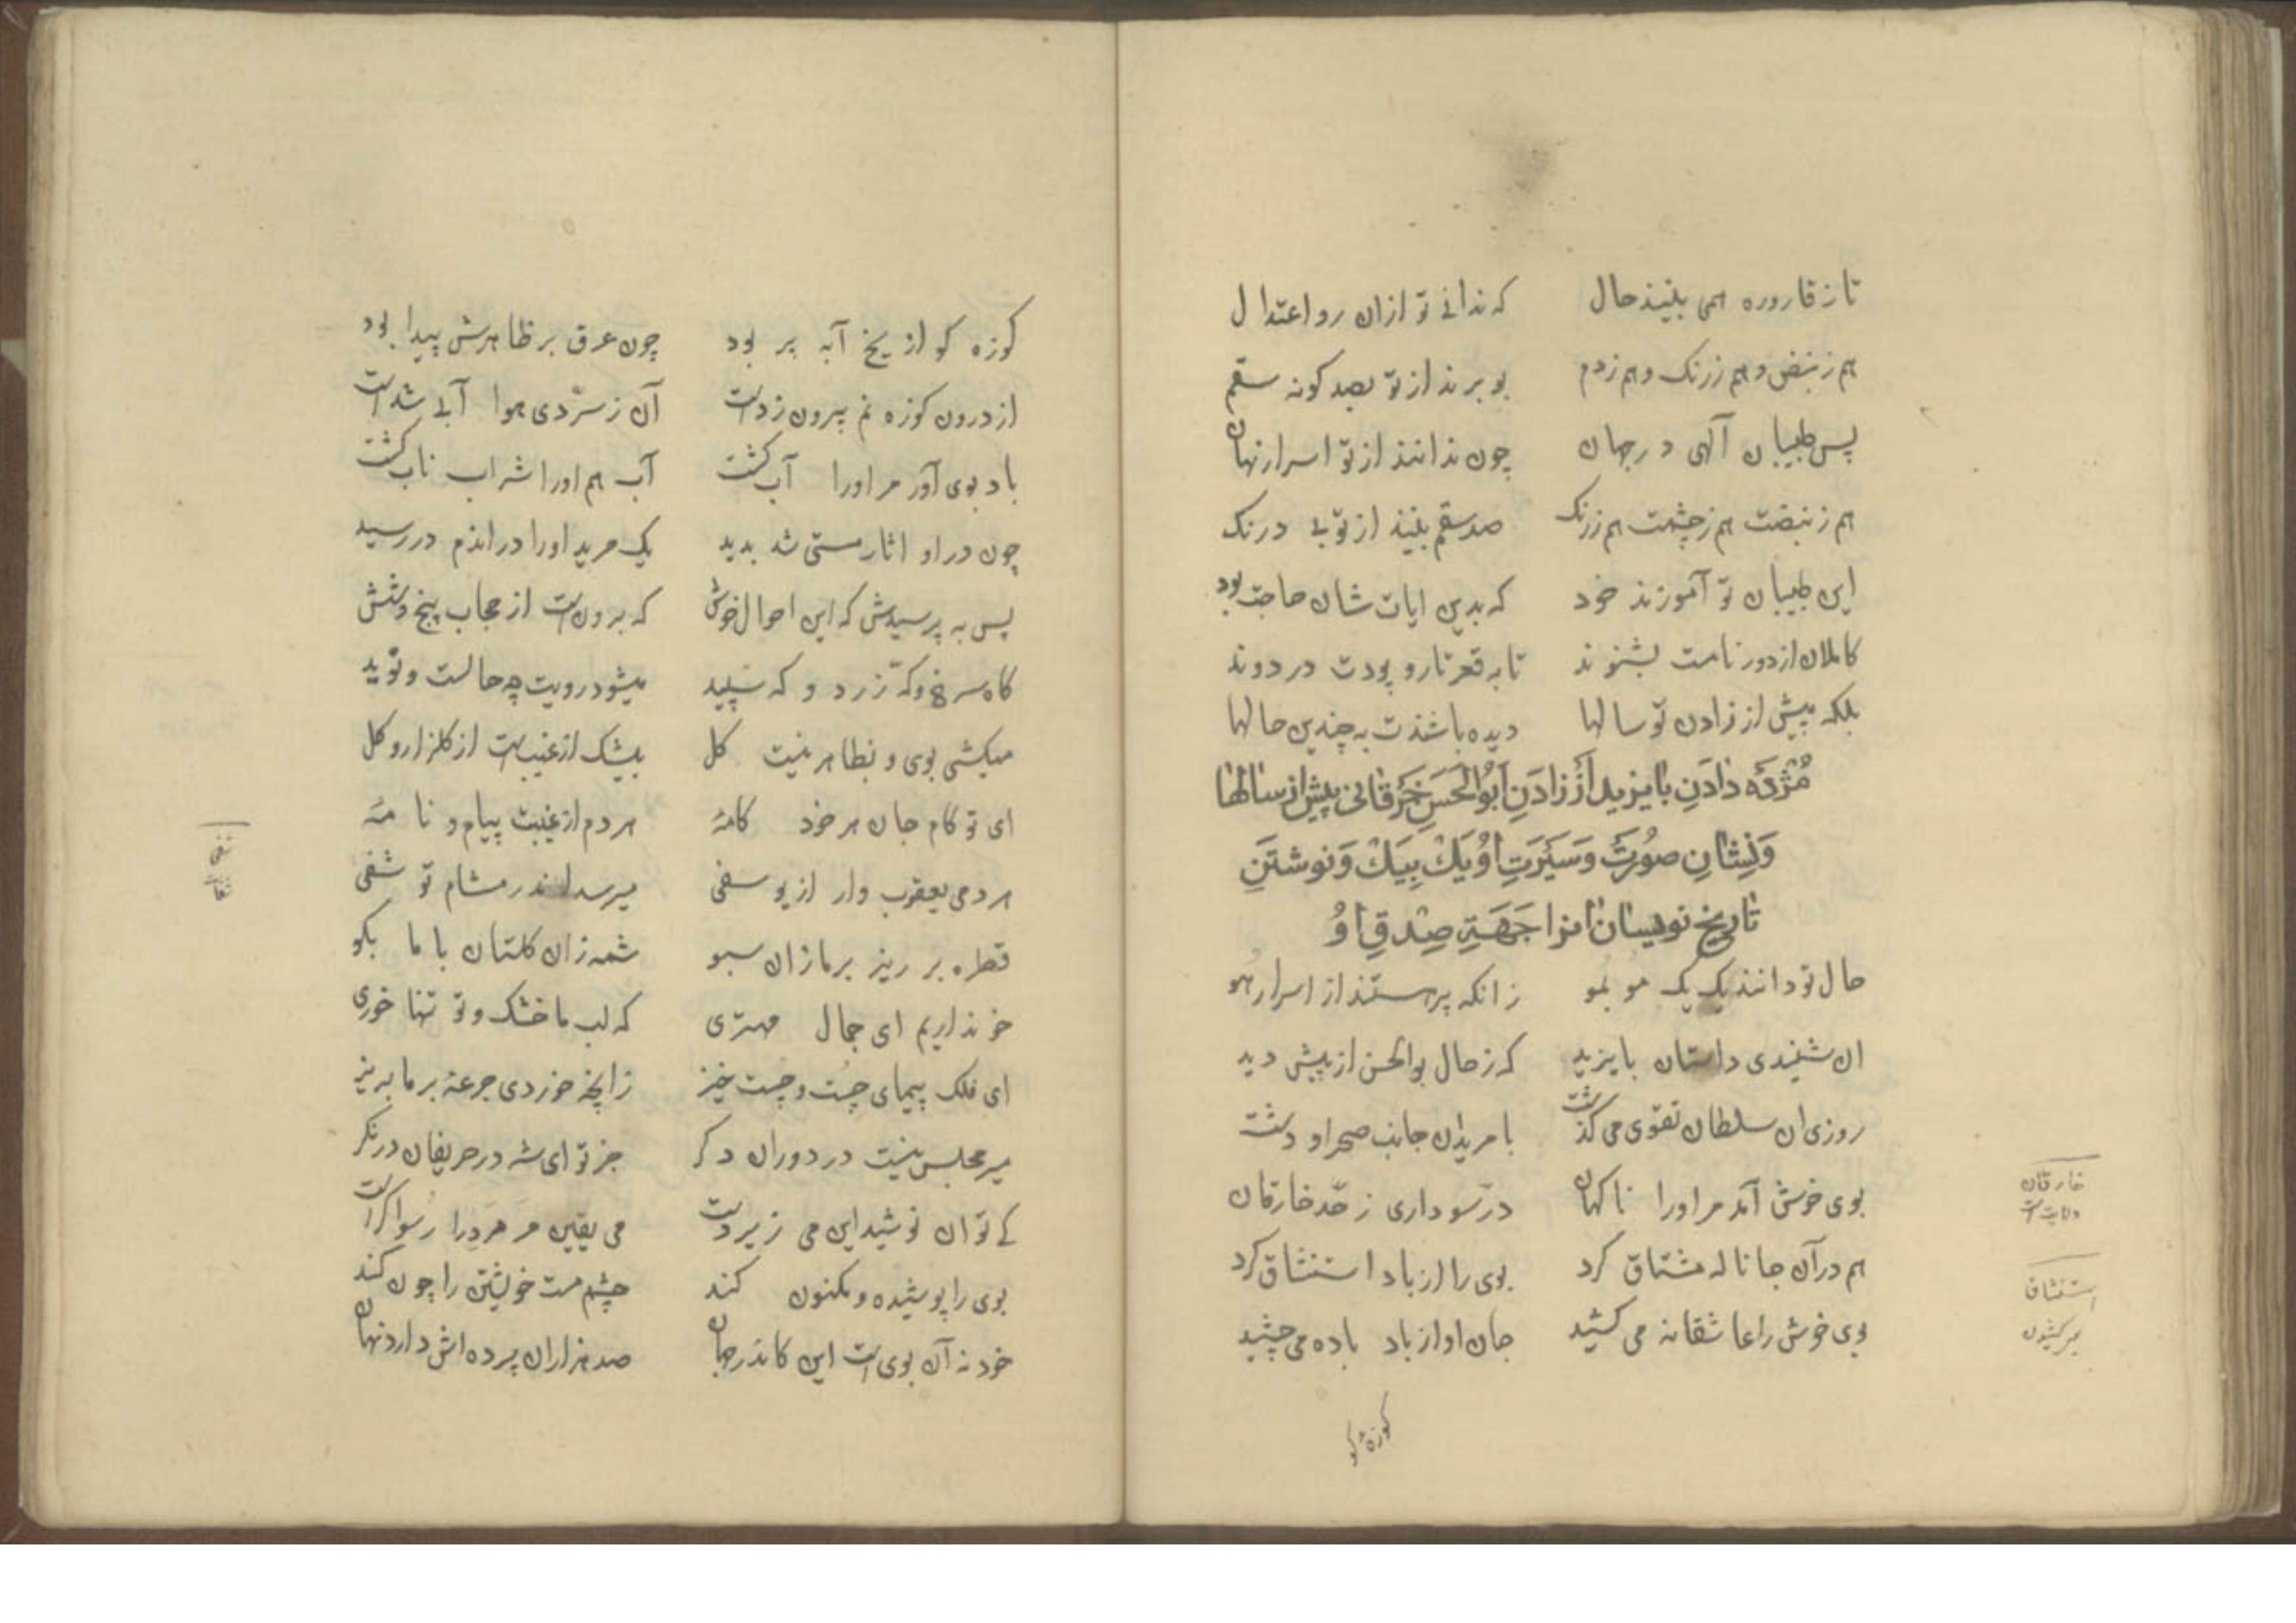 تا ز قاروره همی بینند حال که ندانی تو ازان رو اعتدال
هم ز نبض و هم ز رنک و هم ز دم بو برند از تو بصد کونه سقم
پس طبیبان آلهی در جهان چون ندانند از تو اسرار نهان
هم ز نبضت هم ز چشمت هم ز رنک صد سقم بینند از تو بی درنک
این طبیبان تو آموزند خود که بدین ایات شان حاجت بود
کاملان از دور نامت بشنوند تا به قعر تار و پودت در دوند
بلکه پیش از زادن تو سالها دیده باشندت به چندین حالها
مُژدَه دادَنِ بایزید اَز زادَنِ اَبُوالحَسَن خَرَقانی پیش از سالها
وَنِشانِ صُورَت وَسَیرَتِ اُو یَک بِیَک وَنوشتَنِ
تاریخ نویسان انرا جَهَةِ صِدقِ اوُ
حال تو دانند یک یک مو بمو زانکه پر هستند از اسرار هو
ان شنیدی داستان بایزید که ز حال بوالحسن از پیش دید
روزی ان سلطان تقوی می کذشت با مریدان جانب صحرا و دشت
بوی خوش آمد مر اورا ناکهان در سو داری ز حد خارقان
هم در آن جا ناله مشتاق کرد بوی را از باد استنشاق کرد
بوی خوش را عاشقانه می کشید جان او از باد باده می چشید
خارقان
ولایت است
استنشاق
بر کشیدن
کوزه کو
کوزه کو از یخ آبه پر بود چون عرق بر ظاهرش پیدا بود
آن ز سردی هوا آبی شدست از درون کوزه نم بیرون زدست
باد بوی آور مر اورا آب کشت آب هم اورا شراب ناب کشت
چون در او اثار مستی شد بدید یک مرید اورا در اندم در رسید
پس به پرسیدش که این احوال خوش که برونست از حجاب پنج و شش
کاه سرخ و که زرد و که سپید میشود رویت چه حالست و نوید
میکشی بوی و بظاهر نیست کل بیشک از غیبست از کلزار و کل
ای تو کام جان هر خود کامهٔ هر دم از غیبت پیام و نامهٔ
هر دمی یعقوب وار از یوسفی میرسد اندر مشام تو شفی
قطره بر ریز بر ما زان سبو شمه زان کلستان با ما بکو
خو نداریم ای جمال مهتری که لب ما خشک و تو تنها خوری
ای فلک پیمای چست و چست خیز زانچه خوردی جرعه بر ما بریز
میر مجلس نیست در دوران دکر جز تو ای شه در حریفان در نکر
کی توان نوشید این می زیر دست می یقین مر مرد را رسوا کرست
بوی را پوشیده و مکنون کند چشم مست خویشتن را چون کند
خود نه آن بوی است این کاندر جهان صد هزاران پرده اش دارد نهان
شفی
شفا